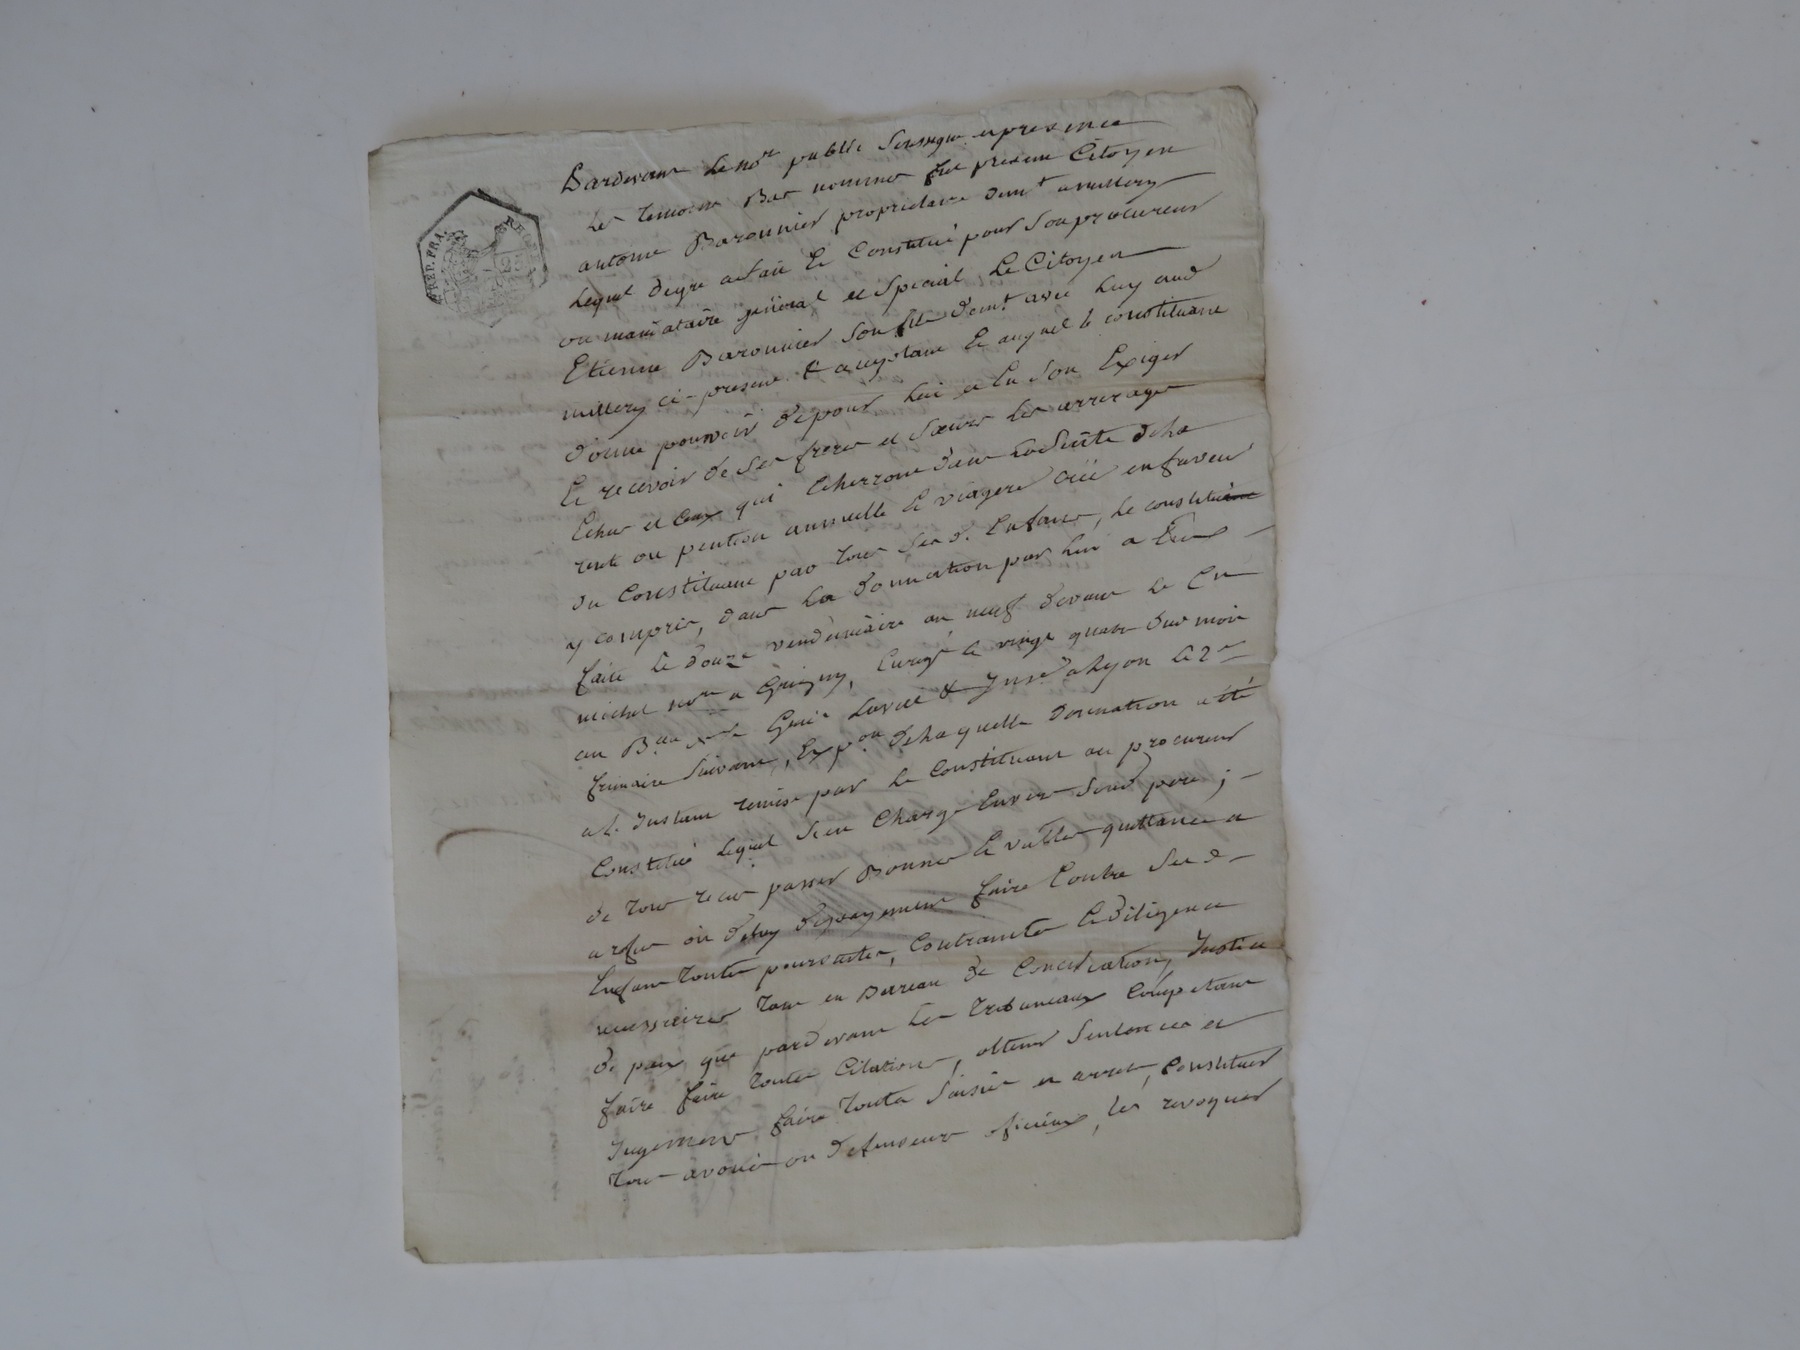 REP. FRA.
Pardevant le no.re public soussigné en presence
des temoins bas nommes fut présent Citoyen
antoine Baronnier proprietaire dem.t a millery
Lequel de gré a fait et Constitué pour son procureur
ou mandataire général et spécial Le Citoyen
Etienne Baronnier son fils dem.t avec luy aud
millery ci-present & acceptant et auquel le constituant
donne pouvoir de pour lui et en son Exiger
et recevoir de ses freres et sœurs les arrerages
Echus et ceux qui Echerront dans la suite de la
rente ou pention annuelle et viagere créé en faveur
du Constituant par tous ses d. Enfans, le constitué
y compris, dans la donnation par lui a Eux
faite le douze vendemiaire an neuf devant le C.en
michel no.re a Grigny, Enregé le vingt quatre dud mois
au B.au de Genis Laval & Insé a Lyon le 2
frimaire suivant, Exp.on de laquelle donnation a été
a l'Instant remise par le Constituant au procureur
Constitué lequel s'en Charge Envers son d pere;
de tous recus passer Bonnes et vallables quittances a
deffaut de payement faire Contre ses d
Enfans toutes poursuites, Contraintes et diligences
necessaires tant en Bureau de Conciliation, Justice
de paix que pardevant les tribunaux Compétans
faire faire toutes Citations, obtenir Sentences et
Jugemens faire toutes saisies et arrets, Constituer
tous avoués ou defenseurs officieux, les revoquer